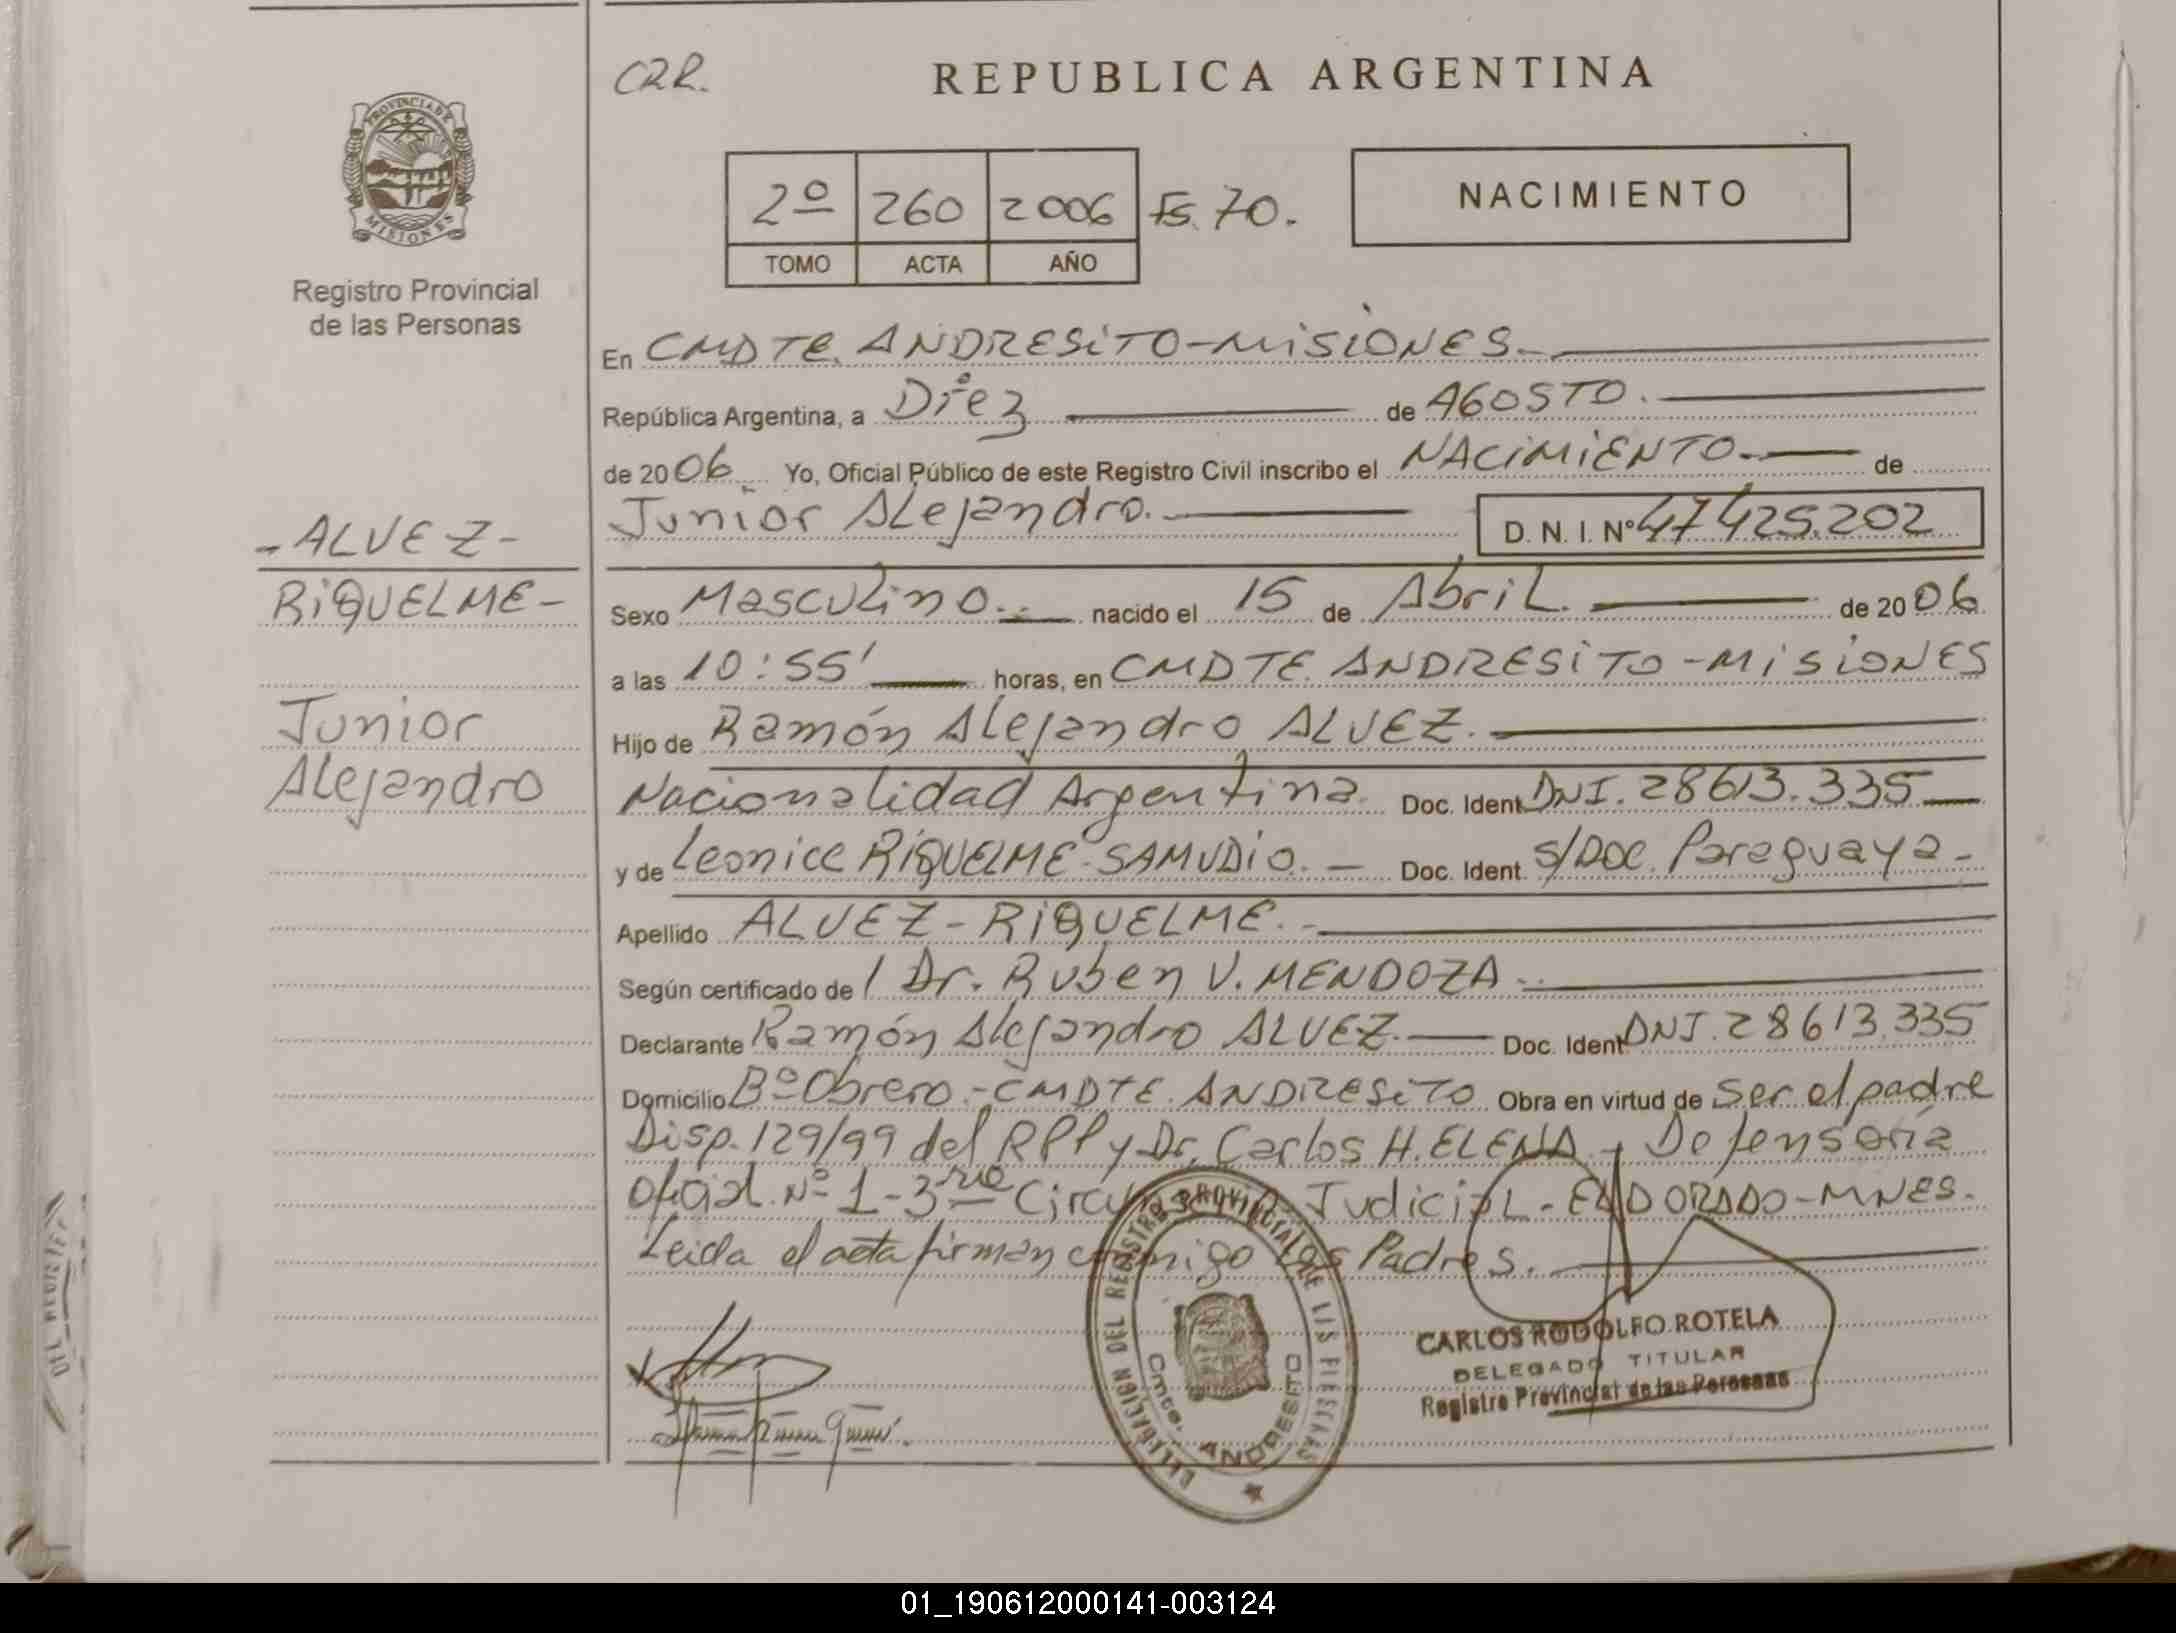 C2R.
REPUBLICA ARGENTINA
PROVINCIA DE
MISIONES
Registro Provincial
de las Personas
2º 260 2006 Fs. 70.
TOMO ACTA AÑO
NACIMIENTO
En CMDTE. ANDRESITO-MISIONES.
República Argentina, a Diez de AGOSTO.
de 2006. Yo, Oficial Público de este Registro Civil inscribo el NACIMIENTO. de
Junior Alejandro. D. N. I. Nº 47425.202
-ALVEZ-
RIQUELME-
Junior
Alejandro
Sexo Masculino. nacido el 15 de Abril. de 2006
a las 10:55' horas, en CMDTE. ANDRESITO-MISIONES
Hijo de Ramón Alejandro ALVEZ.
Nacionalidad Argentina. Doc. Ident. DNI. 28613.335
y de Leonice RIQUELME SAMUDIO. Doc. Ident. S/DOC. Paraguaya-
Apellido ALVEZ-RIQUELME.
Según certificado de Dr. Ruben V. MENDOZA
Declarante Ramón Alejandro ALVEZ. Doc. Ident DNI. 28613.335
Domicilio Bº Obrero.-CMDTE. ANDRESITO Obra en virtud de Ser el padre
Disp. 129/99 del RPP y Dr. Carlos H. ELENA - Defensoría
Oficial Nº 1-3ra Judicial-ELDORADO-MNES.
Leida el acta firman conmigo los Padres.
CARLOS RODOLFO ROTELA
DELEGADO TITULAR
Registro Provincial de las Personas
DELEGACION DEL REGISTRO PROVINCIAL DE LAS PERSONAS
Cmte. ANDRESITO
01_190612000141-003124